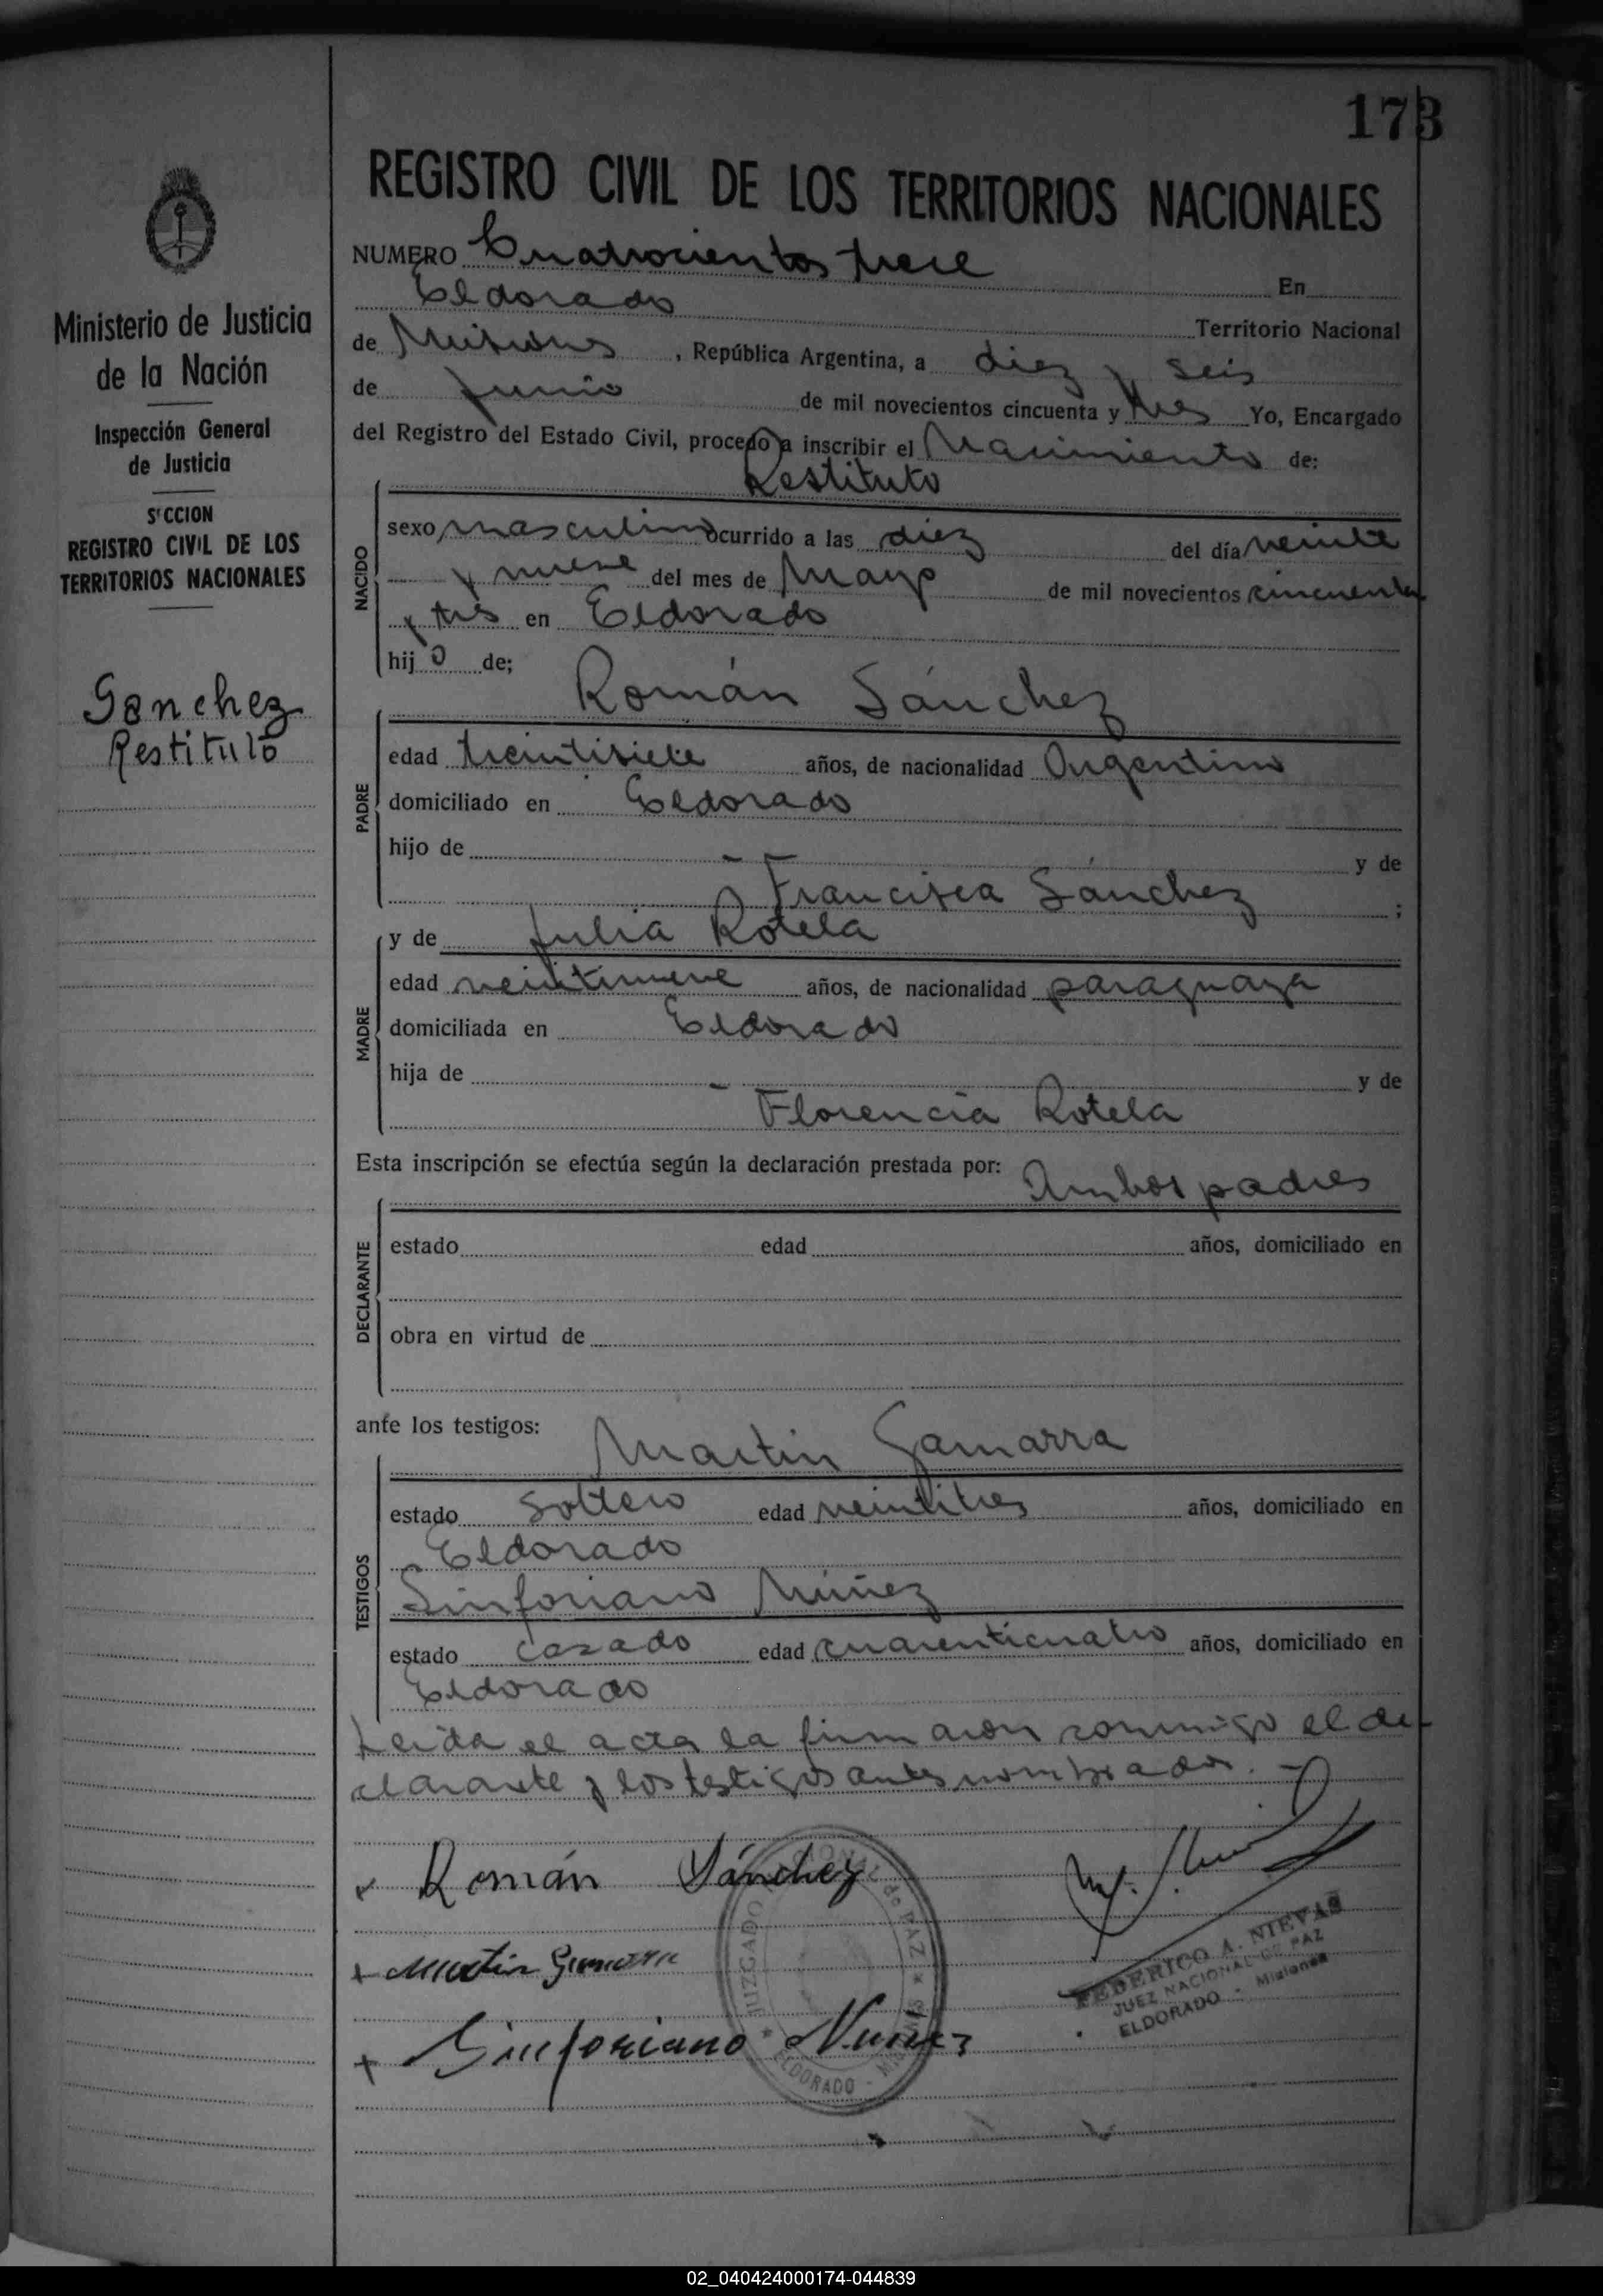 173
REGISTRO CIVIL DE LOS TERRITORIOS NACIONALES
NUMERO Cuatrocientos trece
En
Eldorado Territorio Nacional
de Misiones, República Argentina, a diez y seis
de Junio de mil novecientos cincuenta y tres Yo, Encargado
del Registro del Estado Civil, procedo a inscribir el Nacimiento de:
Restituto
NACIDO
sexo masculino ocurrido a las diez del día veinte
y nueve del mes de Mayo de mil novecientos cincuenta
y tres en Eldorado
hijo de;
Román Sánchez
PADRE
edad treintisiete años, de nacionalidad Argentino
domiciliado en Eldorado
hijo de - y de
Francisca Sánchez ;
MADRE
y de Julia Rotela
edad veintinueve años, de nacionalidad paraguaya
domiciliada en Eldorado
hija de - y de
Florencia Rotela
Esta inscripción se efectúa según la declaración prestada por: Ambos padres
DECLARANTE
estado edad años, domiciliado en
obra en virtud de
ante los testigos: Martín Gamarra
TESTIGOS
estado soltero edad veintitres años, domiciliado en
Eldorado
Sinforiano Núñez
estado casado edad cuarenticuatro años, domiciliado en
Eldorado
Leida el acta la firmaron conmigo el de-
clarante y los testigos antes nombrados. -
Román Sánchez
Martin Gamarra
Sinforiano Nuñez
JUZGADO NACIONAL de PAZ
ELDORADO - MISIONES
FEDERICO A. NIEVAS
JUEZ NACIONAL DE PAZ
ELDORADO - Misiones
Ministerio de Justicia
de la Nación
Inspección General
de Justicia
S'CCION
REGISTRO CIVIL DE LOS
TERRITORIOS NACIONALES
Sanchez
Restituto
02_040424000174-044839